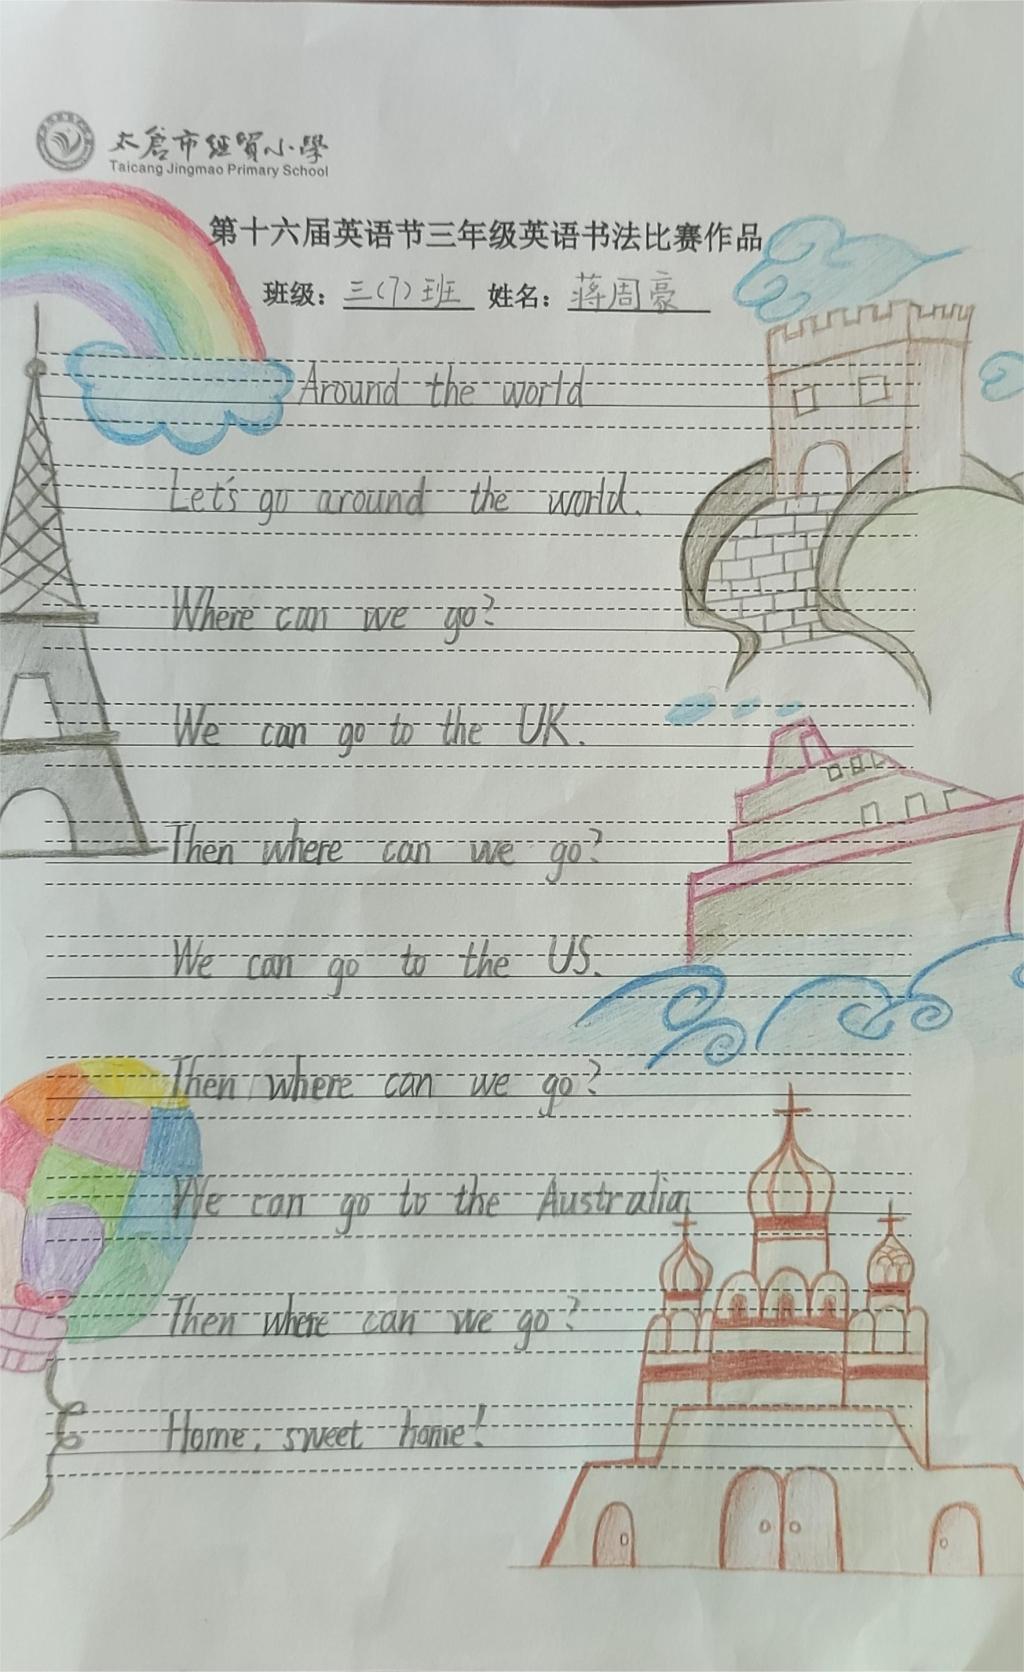 太倉市經貿小學
Taicang Jingmao Primary School
第十六届英语节三年级英语书法比赛作品
班级：三(7)班 姓名：蒋周豪
Around the world
Let's go around the world.
Where can we go?
We can go to the UK.
Then where can we go?
We can go to the US.
Then where can we go?
We can go to the Australia
Then where can we go?
Home, sweet home!